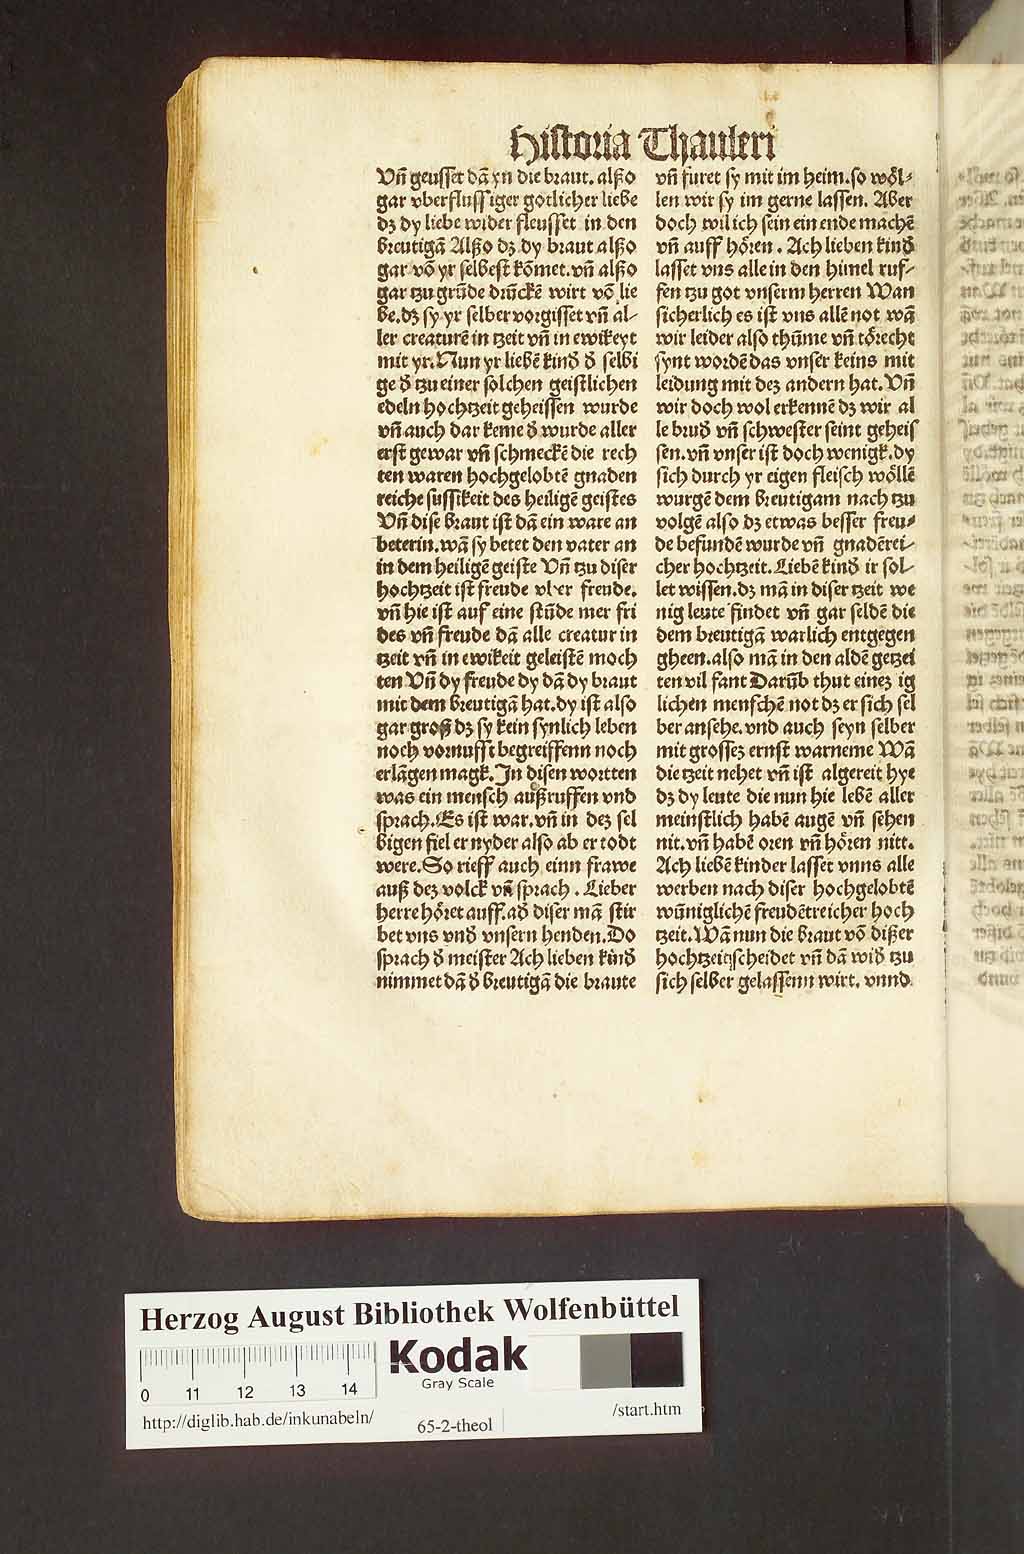 Historia Thauleri
Vñ geusset dã yn die braut. alßo
gar vberflussiger gotlicher liebe
dʒ dy liebe wider fleusset in den
breutigã Alßo dʒ dy braut alßo
gar võ yr selbest kõmet. vñ alßo
gar tzu grũde drũckẽ wirt võ lie
be. dʒ sy yr selber vorgisset vñ al⸗
ler creaturẽ in tzeit vñ in ewikeyt
mit yr. Nun yr liebẽ kinđ đ selbi
ge đ tzu einer solchen geistlichen
edeln hochtzeit geheissen wurde
vñ auch dar keme đ wurde aller
erst gewar vñ schmeckẽ die rech
ten waren hochgelobtẽ gnaden
reiche sussikeit des heiligẽ geistes
Vñ dise braut ist dã ein ware an
beterin. wã sy betet den vater an
in dem heiligẽ geiste Vñ tzu diser
hochtzeit ist freude vber freude.
vñ hie ist auf eine stũde mer fri
des vñ freude dã alle creatur in
tzeit vñ in ewikeit geleistẽ moch
ten Vñ dy freude dy dã dy braut
mit dem breutigã hat. dy ist also
gar groß dʒ sy kein synlich leben
noch vornufft begreiffenn noch
erlãgen magk. In disen wortten
was ein mensch außruffen vnd
sprach. Es ist war. vñ in deʒ sel
bigen fiel er nyder also ab er todt
were. So rieff auch einn frawe
auß deʒ volck vñ sprach. Lieber
herre höret auff. ađ diser mã stir
bet vns vnđ vnsern henden. Do
sprach đ meister Ach lieben kinđ
nimmet dã đ breutigã die braute
vñ furet sy mit im heim. so wöl⸗
len wir sy im gerne lassen. Aber
doch wil ich sein ein ende machẽ
vñ auff hören. Ach lieben kinđ
lasset vns alle in den himel ruf⸗
fen tzu got vnserm herren Wan
sicherlich es ist vns allẽ not wã
wir leider also thũme vñ törecht
synt wordẽ das vnser keins mit
leidung mit deʒ andern hat. Vñ
wir doch wol erkennẽ dʒ wir al
le bruđ vñ schwester seint geheis
sen. vñ vnser ist doch wenigk. dy
sich durch yr eigen fleisch wöllẽ
wurgẽ dem breutigam nach tzu
volgẽ also dʒ etwas besser freu⸗
de befundẽ wurde vñ gnadẽrei⸗
cher hochtzeit. Liebẽ kinđ ir sol⸗
let wissen. dʒ mã in diser tzeit we
nig leute findet vñ gar seldẽ die
dem breutigã warlich entgegen
gheen. also mã in den aldẽ getzei
ten vil fant Darũb thut eineʒ ig
lichen menschẽ not dʒ er sich sel
ber ansehe. vnd auch seyn selber
mit grosseʒ ernst warneme Wã
die tzeit nehet vñ ist algereit hye
dʒ dy leute die nun hie lebẽ aller
meinstlich habẽ augẽ vñ sehen
nit. vñ habẽ oren vñ hören nitt.
Ach liebẽ kinder lasset vnns alle
werben nach diser hochgelobtẽ
wũniglichẽ freudẽtreicher hoch
tzeit. Wã nun die braut võ dißer
hochtzeit scheidet vñ dã wiđ tzu
sich selber gelassenn wirt. vnnd
Herzog August Bibliothek Wolfenbüttel
Kodak
Gray Scale
0 11 12 13 14
http://diglib.hab.de/inkunabeln/
65-2-theol
/start.htm